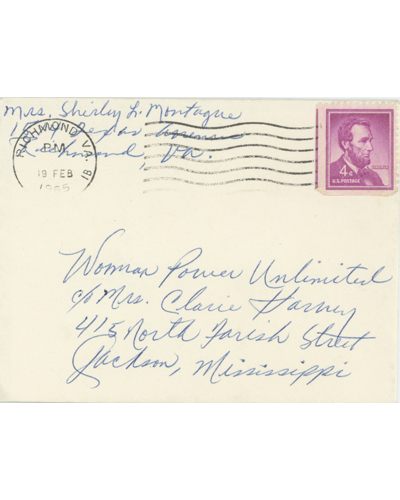 Mrs. Shirley L. Montague
Texas Avenue
Richmond, Va.
RICHMOND, VA.
PM
19 FEB
18
4¢
U.S. POSTAGE
Woman Power Unlimited
c/o Mrs. Clarie Harvey
415 North Farish Street
Jackson, Mississippi